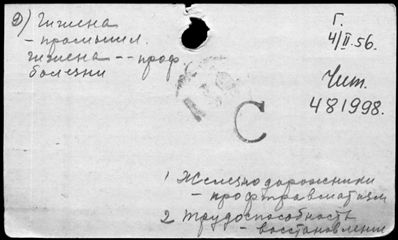 а) Гигиена
- промышл.
гигиена -- проф
болезни
Г.
4/II.56.
Чит.
481998.
С
1 Железнодорожники
- проф травматизм
2 Трудоспособность
- восстановление